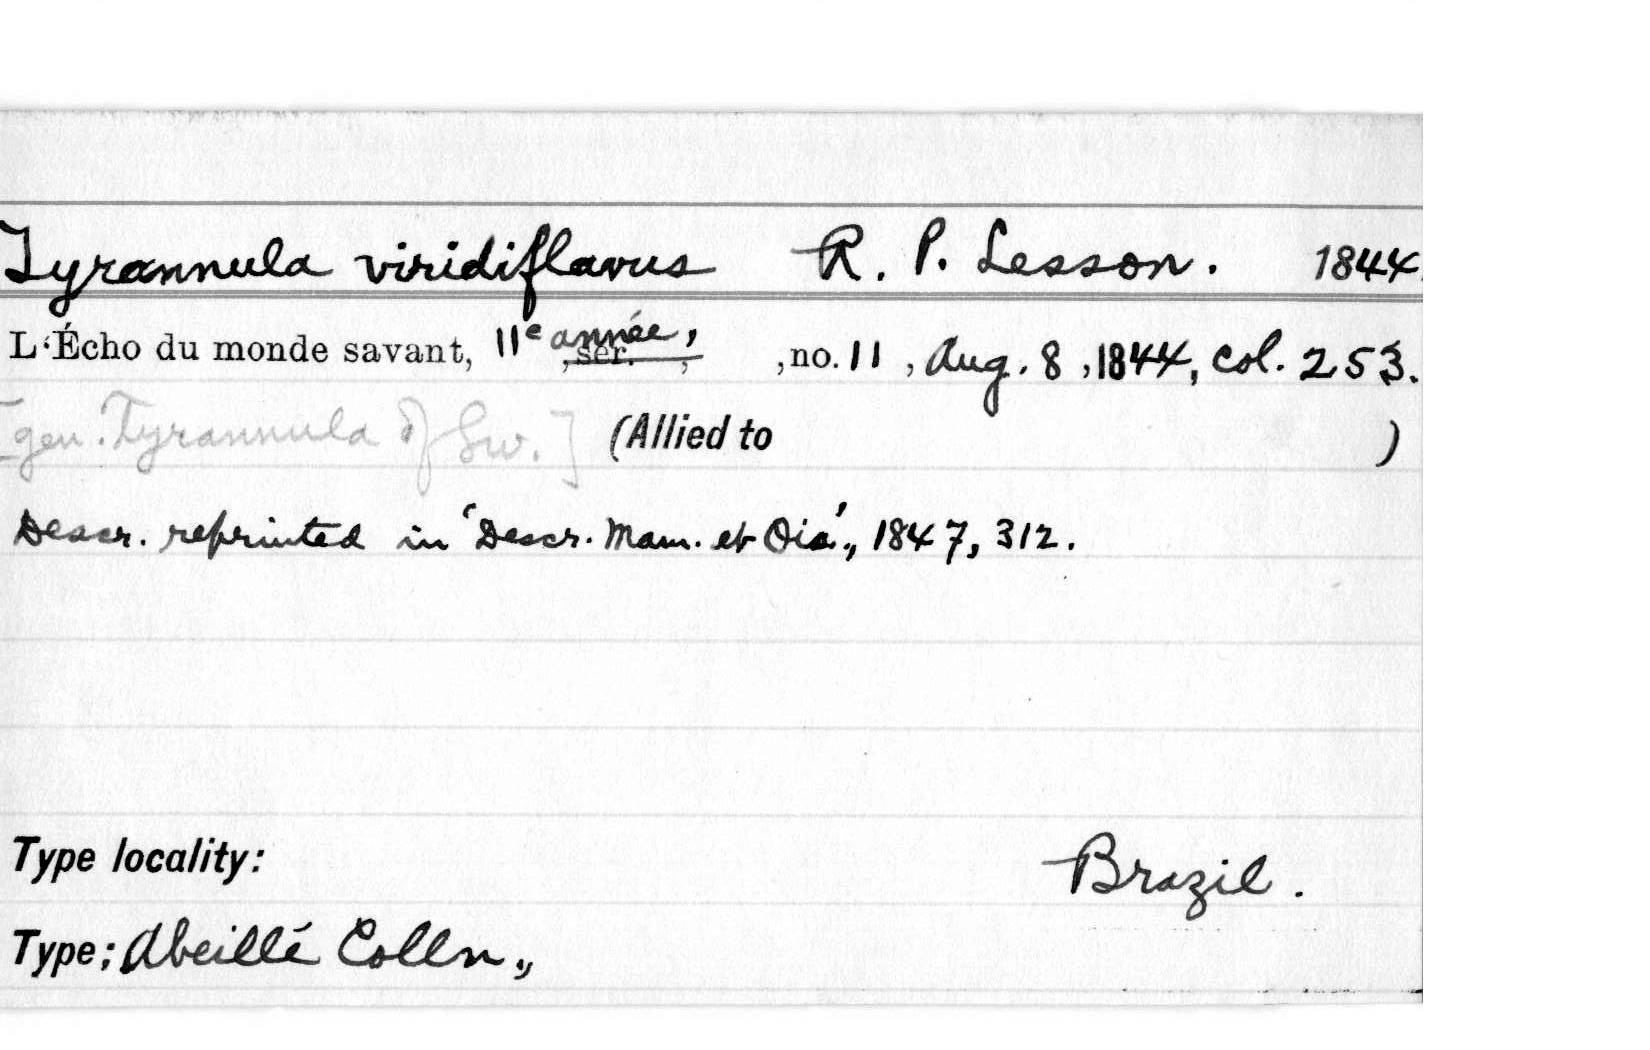 Tyrannula viridiflavus R. P. Lesson. 1844.
L‘Écho du monde savant, 11e année, , ser. , , no. 11 , Aug. 8 , 1844, col. 253.
[gen. Tyrannula of Sw.] (Allied to )
Descr. reprinted in 'Descr. Mam. et Ois.', 1847, 312.
Type locality: Brazil.
Type; Abeillé Colln.,